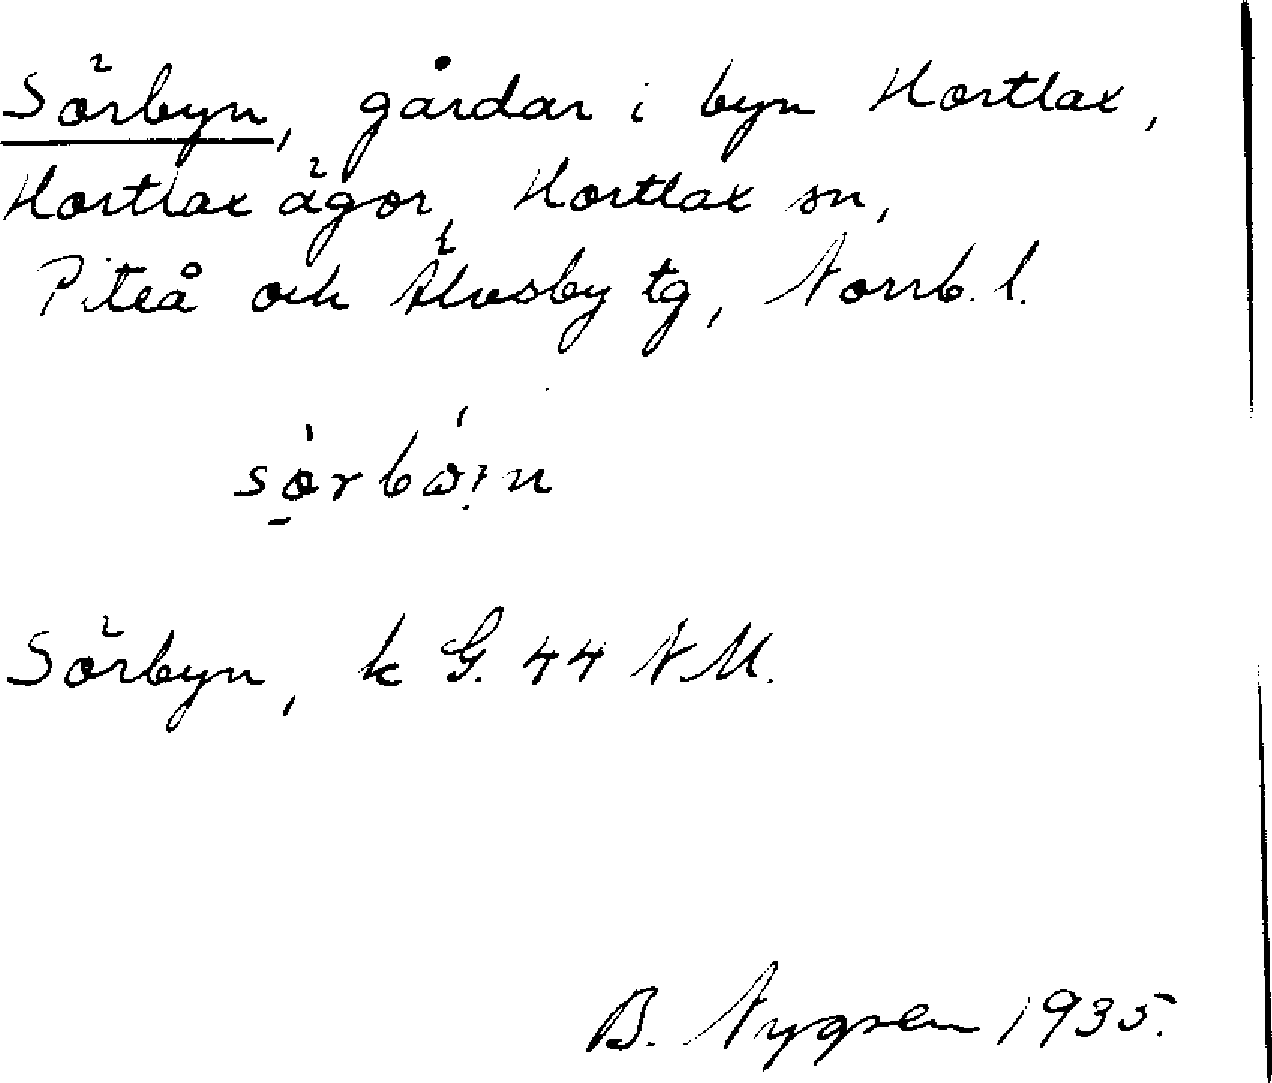 Sörbyn, gårdar i byn Hortlax,
Hortlax ägor, Hortlax sn,
Piteå och Älvsby tg, Norrb. l.
Sörbyn, k G. 44 N M.
B. Nygren 1935.